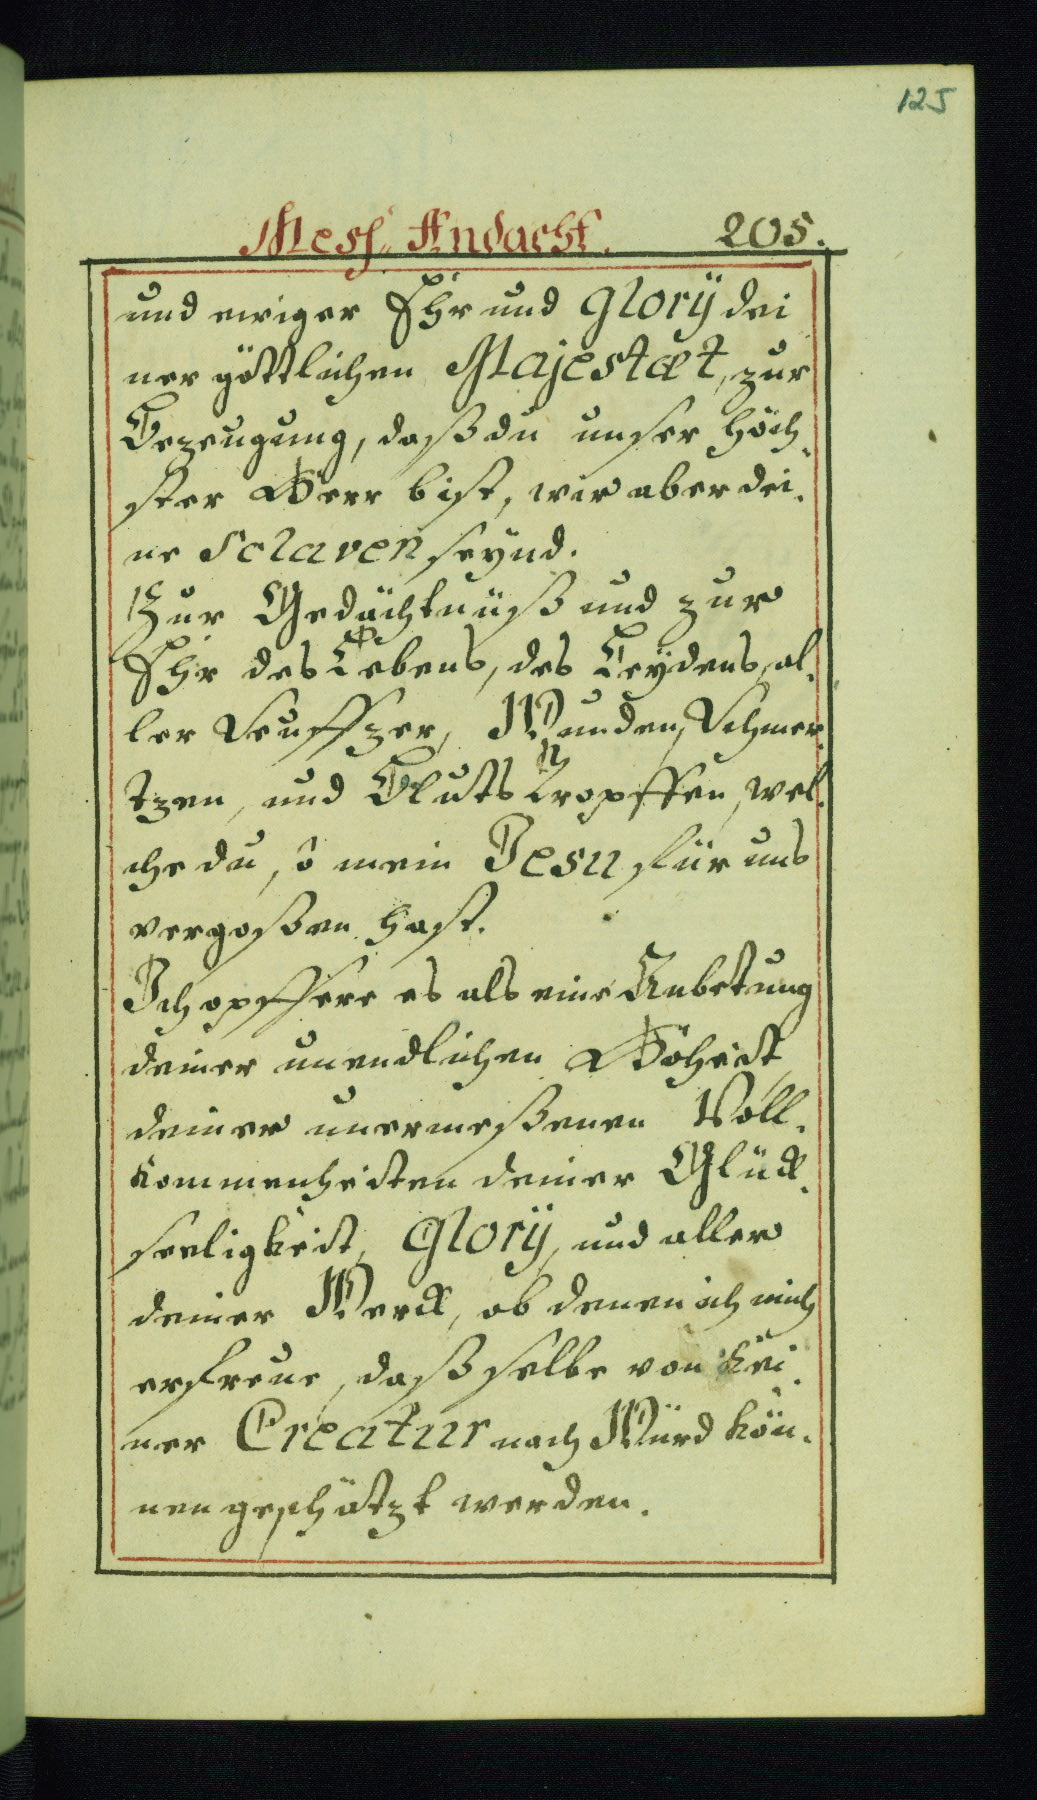 125
Mess Andacht. 205.
und ewiger Ehr und Glorÿ dei
ner göttlichen Majestæt, zur
Bezeugung, daß du unser höch,
ster Herr bist, wir aber dei,
ne Sclaven seynd.
Zur Gedächtnüß und zur
Ehr des Lebens, des Leÿdens, al,
ler Seuffzer, Wunden, Schmer,
tzen, und Bluts Tropffen, wel,
che du, ô mein Jesu für uns
vergoßen hast.
Ich opffere es als eine Anbetung
deiner unendlichen Höheit
deiner unermeßenen Voll,
kommenheiten deiner Glück,
seeligkeit, Glorÿ, und aller
deiner Werck, ob denen ich mich
erfreue, daß selbe von kei,
ner Creatur nach Würd kön,
nen geschätzt werden.